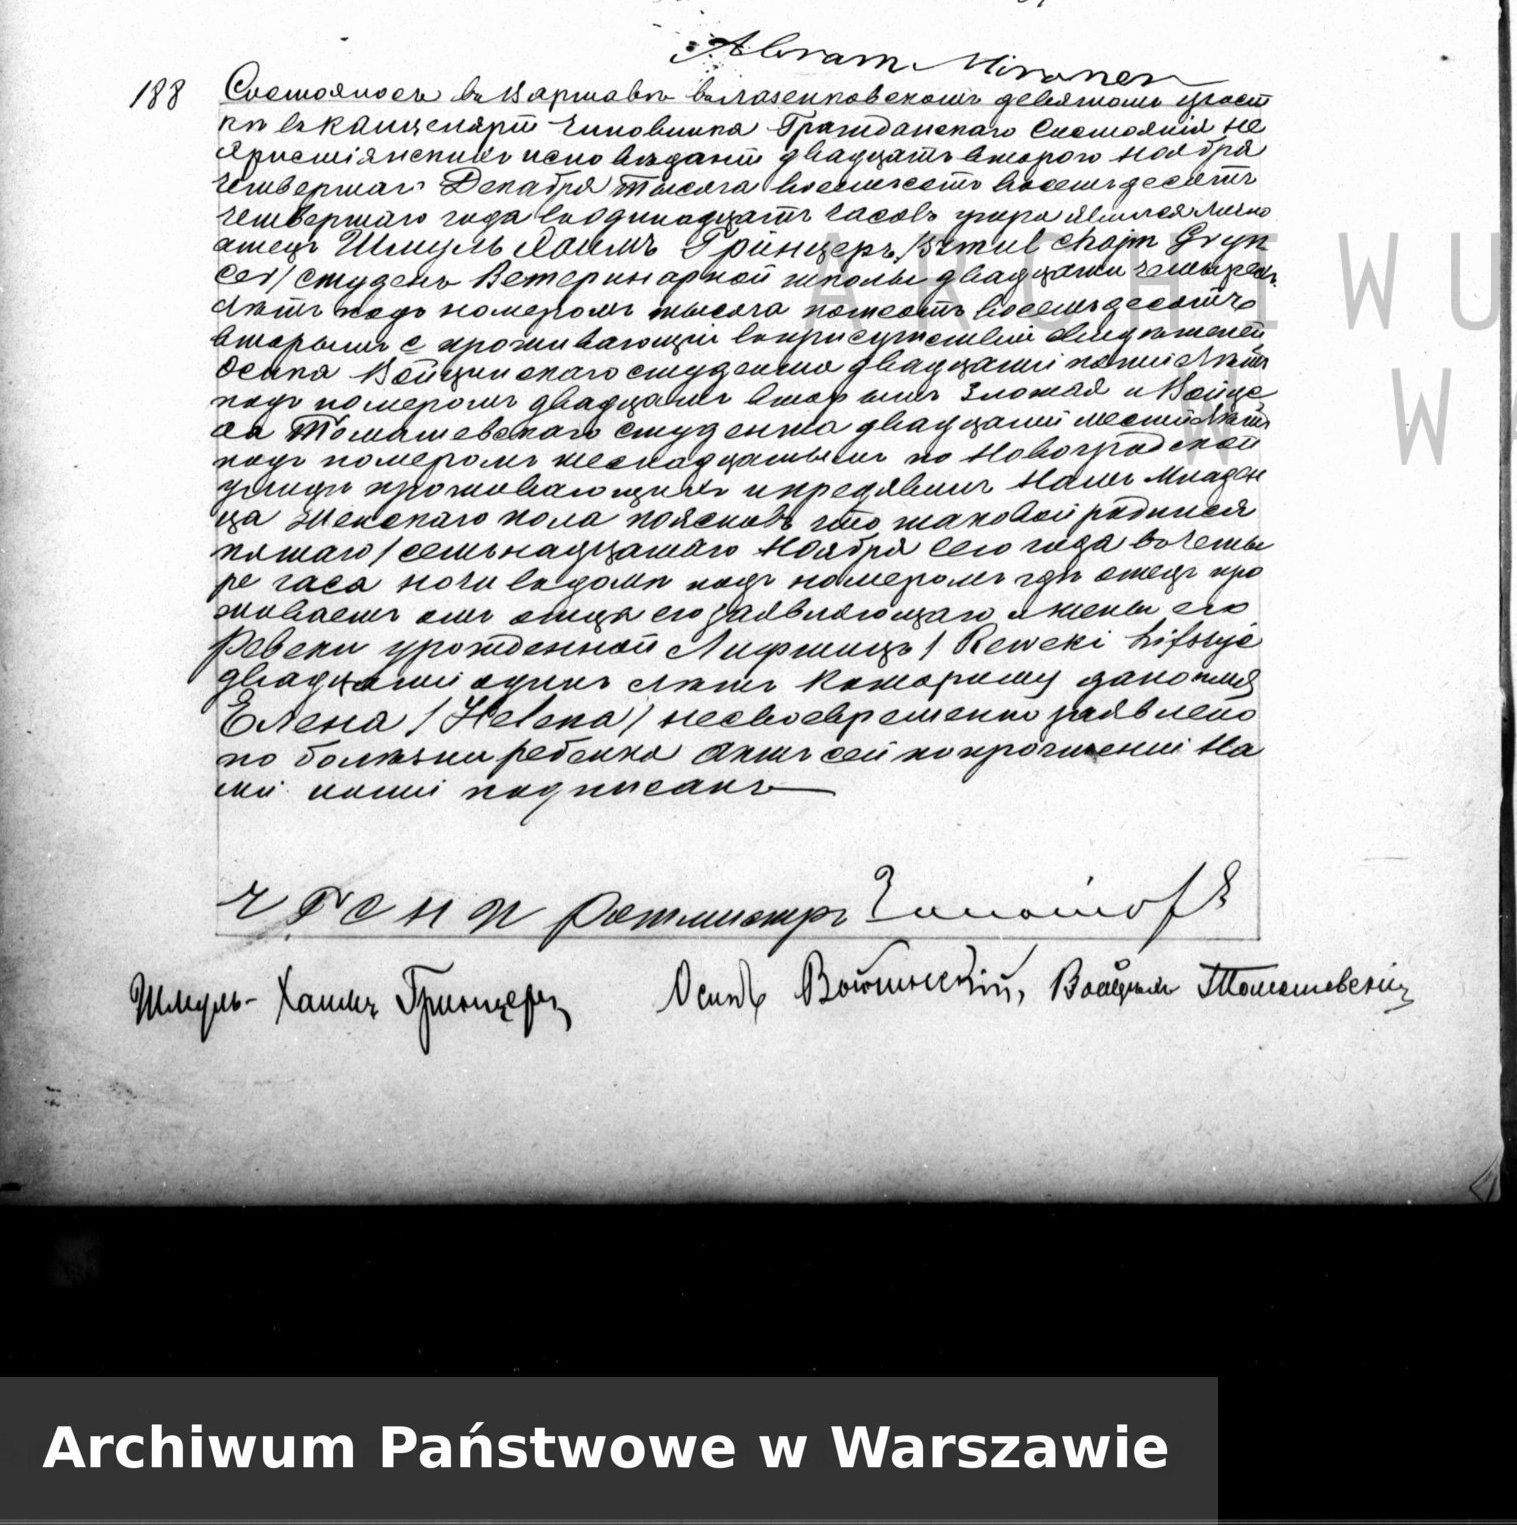 Abram Mironer
188
Состоялось въ Варшавѣ въ Лазенковскомъ девятомъ участ
кѣ въ канцеляріи Чиновника Гражданскаго Состоянія не
христіянскихъ исповѣданій двадцать втораго Ноября
четвертаго Декабря тысяча восемьсотъ восемьдесятъ
четвертаго года въ одинадцать часовъ утра явился лично
отецъ Шмуль Хаимъ Гринцеръ /Szmul Chajm Gryn
cer/ студенъ Ветеринарной школы двадцати четырехъ
лѣтъ подъ номеромъ тысяча пятьсотъ восемьдесятъ
вторымъ с проживающій въ присутствіи свидѣтелей
Осипа Войцинскаго студента двадцати пяти лѣтъ
подъ номеромъ двадцать вторымъ Злотая и Войце
ха Томашевскаго студента двадцати шести лѣтъ
подъ номеромъ шеснадцатымъ по Новогродской
улицѣ проживающихъ и предявилъ Намъ Младен
ца Женскаго пола поясновъ что таковой родился
пятаго / семьнадцатаго Ноября сего года в четы
ре часа ночи въ домѣ подъ номеромъ гдѣ отецъ про
живаетъ отъ отца его заявляющаго и жены его
Ревеки урожденной Лифшицъ / Reweki Lifszyc
двадцати одинъ лѣтъ Которому дано имя
Елена / Helena / несвоевременно заявлено
по болѣзни ребенка Актъ сей по прочтеніи На
ми ими подписанъ
Ч Г С Н И Ротмистръ
Шмуль-Хаимъ Гринцеръ Осипъ Войцинскій, Войцѣхъ Томашевскій
ARCHIWU
W
Archiwum Państwowe w Warszawie